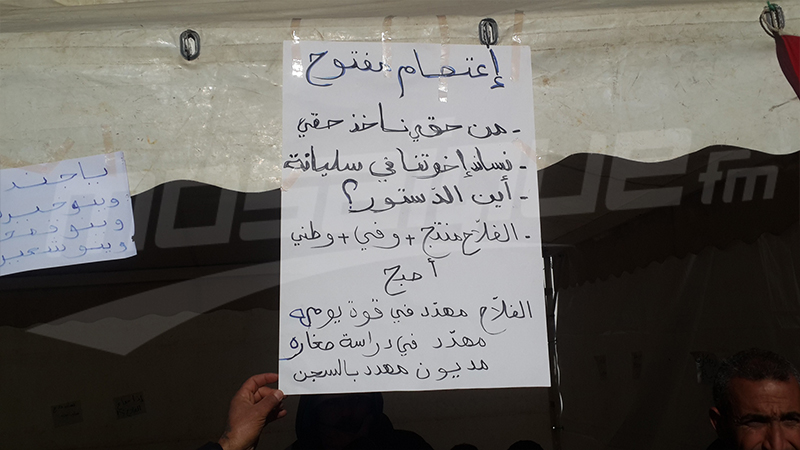 إعتصام مفتوح
- من حقي ناخذ حقي
- نساند إخوتنا في سليانة
- أين الدّستور؟
- الفلاّح منتج + وفي + وطني
أصبح
الفلاّح مهدّد في قوة يومه
مهدّد في دراسة صغاره
مديون مهدد بالسجن
mosaique fm